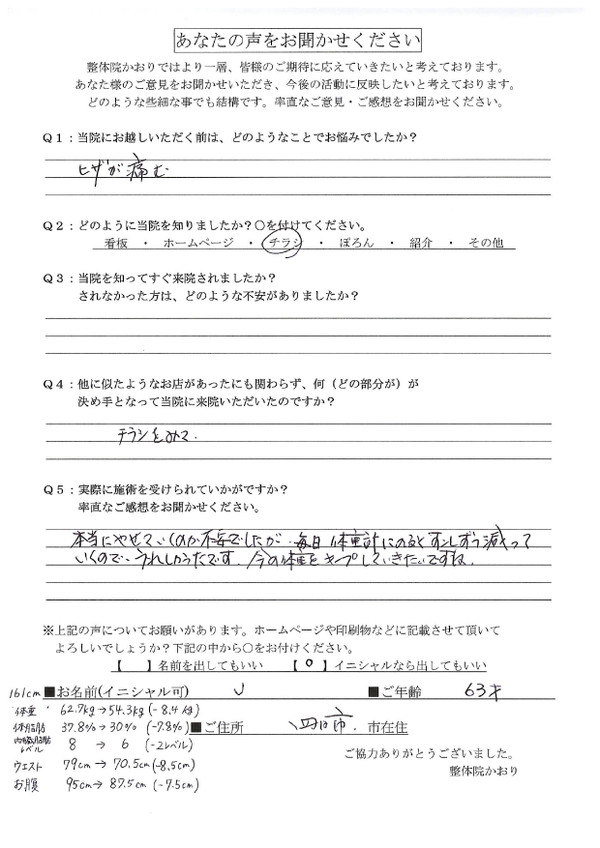 あなたの声をお聞かせください
整体院かおりではより一層、皆様のご期待に応えていきたいと考えております。
あなた様のご意見をお聞かせいただき、今後の活動に反映したいと考えております。
どのような些細な事でも結構です。率直なご意見・ご感想をお聞かせください。
Q1：当院にお越しいただく前は、どのようなことでお悩みでしたか？
ヒザが痛む
Q2：どのように当院を知りましたか？〇を付けてください。
看板 ・ ホームページ ・ チラシ ・ ぽろん ・ 紹介 ・ その他
Q3：当院を知ってすぐ来院されましたか？
されなかった方は、どのような不安がありましたか？
Q4：他に似たようなお店があったにも関わらず、何（どの部分が）が
決め手となって当院に来院いただいたのですか？
チラシをみて.
Q5：実際に施術を受けられていかがですか？
率直なご感想をお聞かせください。
本当にやせていくのか不安でしたが、毎日体重計にのると少しずつ減って
いくので、うれしかったです。今の体重をキープしていきたいですね。
※上記の声についてお願いがあります。ホームページや印刷物などに記載させて頂いて
よろしいでしょうか？下記の中から〇をお付けください。
【 】名前を出してもいい 【 o 】イニシャルなら出してもいい
161cm ■お名前(イニシャル可) J ■ご年齢 63才
体重 62.7kg→54.3kg(-8.4kg)
体脂肪 37.8%→30%(-7.8%) ■ご住所 四日市. 市在住
内臓脂肪レベル 8 → 6 (-2レベル)
ご協力ありがとうございました。
ウエスト 79cm→70.5cm(-8.5cm)
整体院かおり
お腹 95cm→87.5cm(-7.5cm)